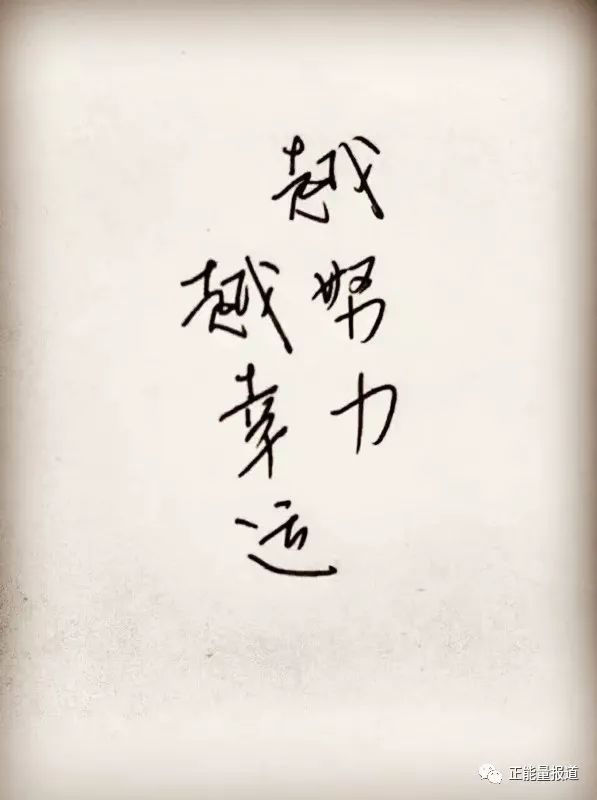 越努力
越幸运
正能量报道